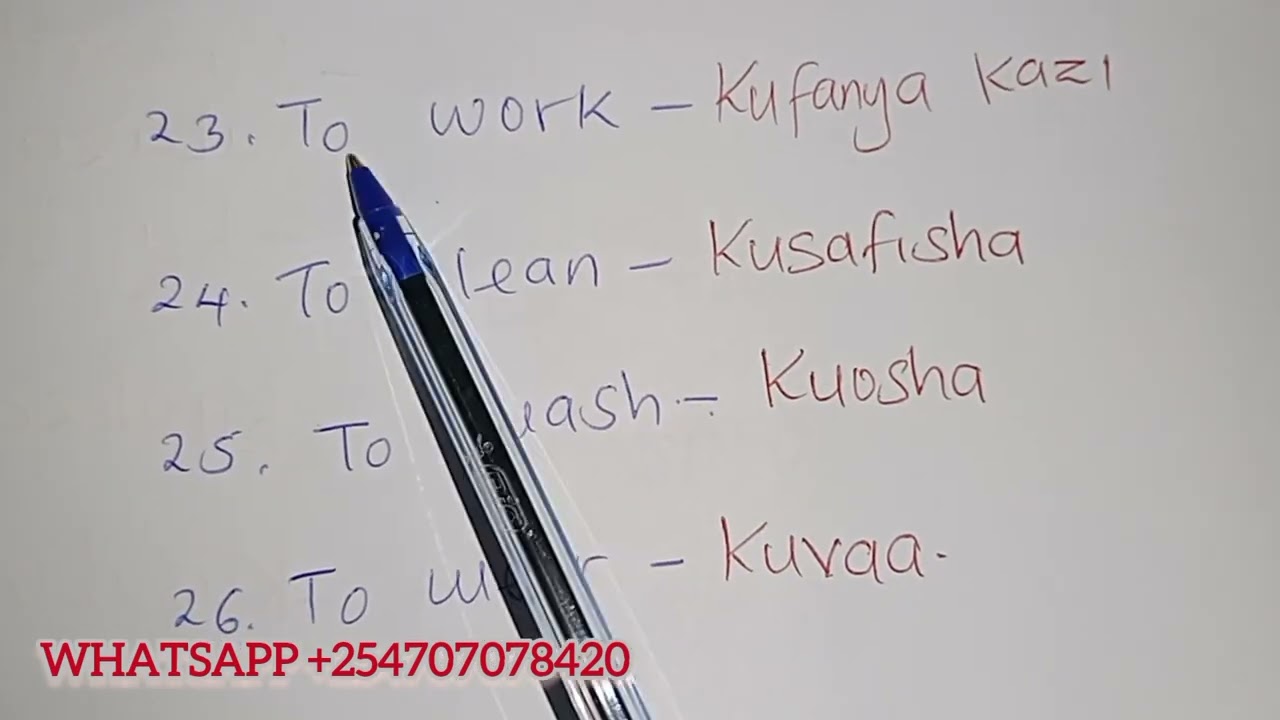 23. To work - Kufanya kazi
24. To lean - Kusafisha
25. To ash - Kuosha
26. To - Kuvaa.
WHATSAPP +254707078420